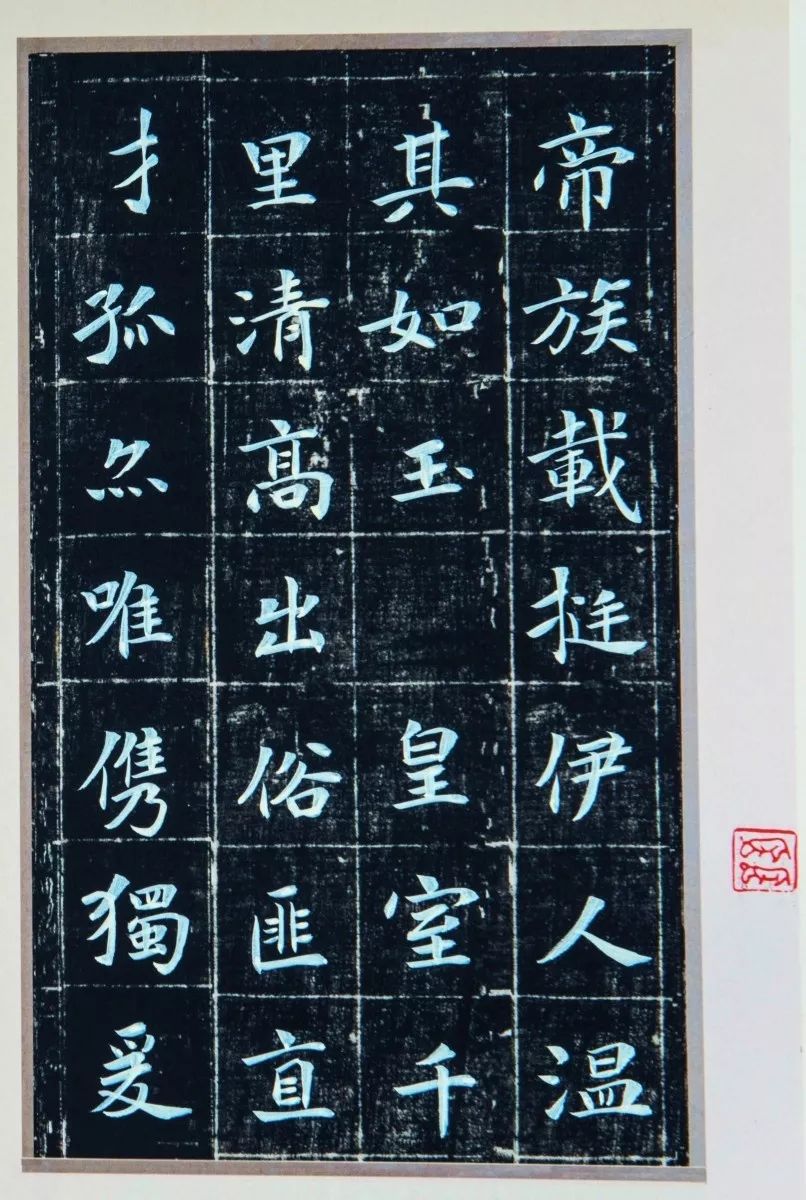 帝族載挺伊人温
其如玉 皇室千
里清髙出俗匪直
才孤唯儁獨爰